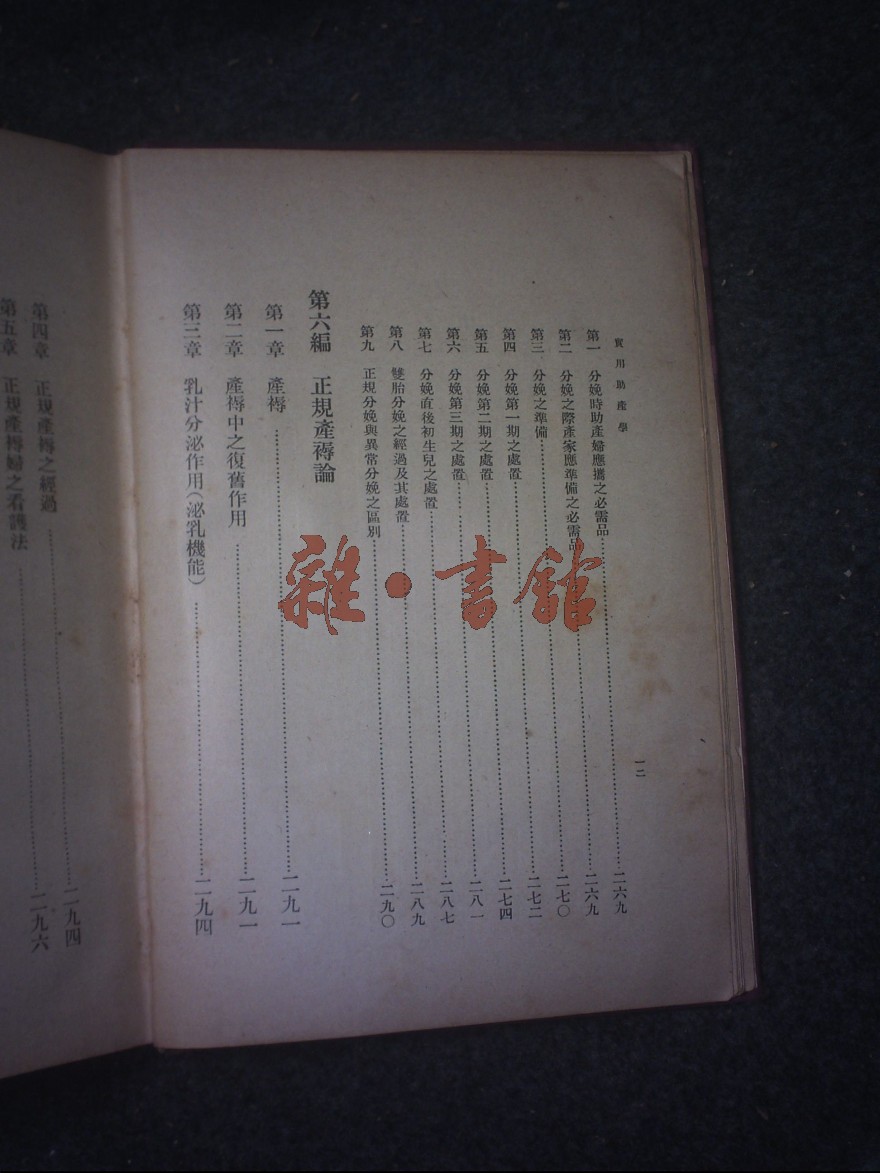 實用助產學
一二
第一 分娩時助產婦應攜之必需品 二六九
第二 分娩之際產家應準備之必需品 二七〇
第三 分娩之準備 二七二
第四 分娩第一期之處置 二七四
第五 分娩第二期之處置 二八一
第六 分娩第三期之處置 二八七
第七 分娩直後初生兒之處置 二八七
第八 雙胎分娩之經過及其處置 二八九
第九 正規分娩與異常分娩之區別 二九〇
第六編 正規產褥論
第一章 產褥 二九一
第二章 產褥中之復舊作用 二九一
第三章 乳汁分泌作用(泌乳機能) 二九四
第四章 正規產褥之經過 二九四
第五章 正規產褥婦之看護法 二九六
雜·書館